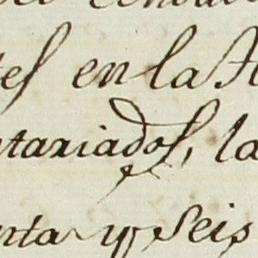 tes en la A
ntariados, la
nta y Seis